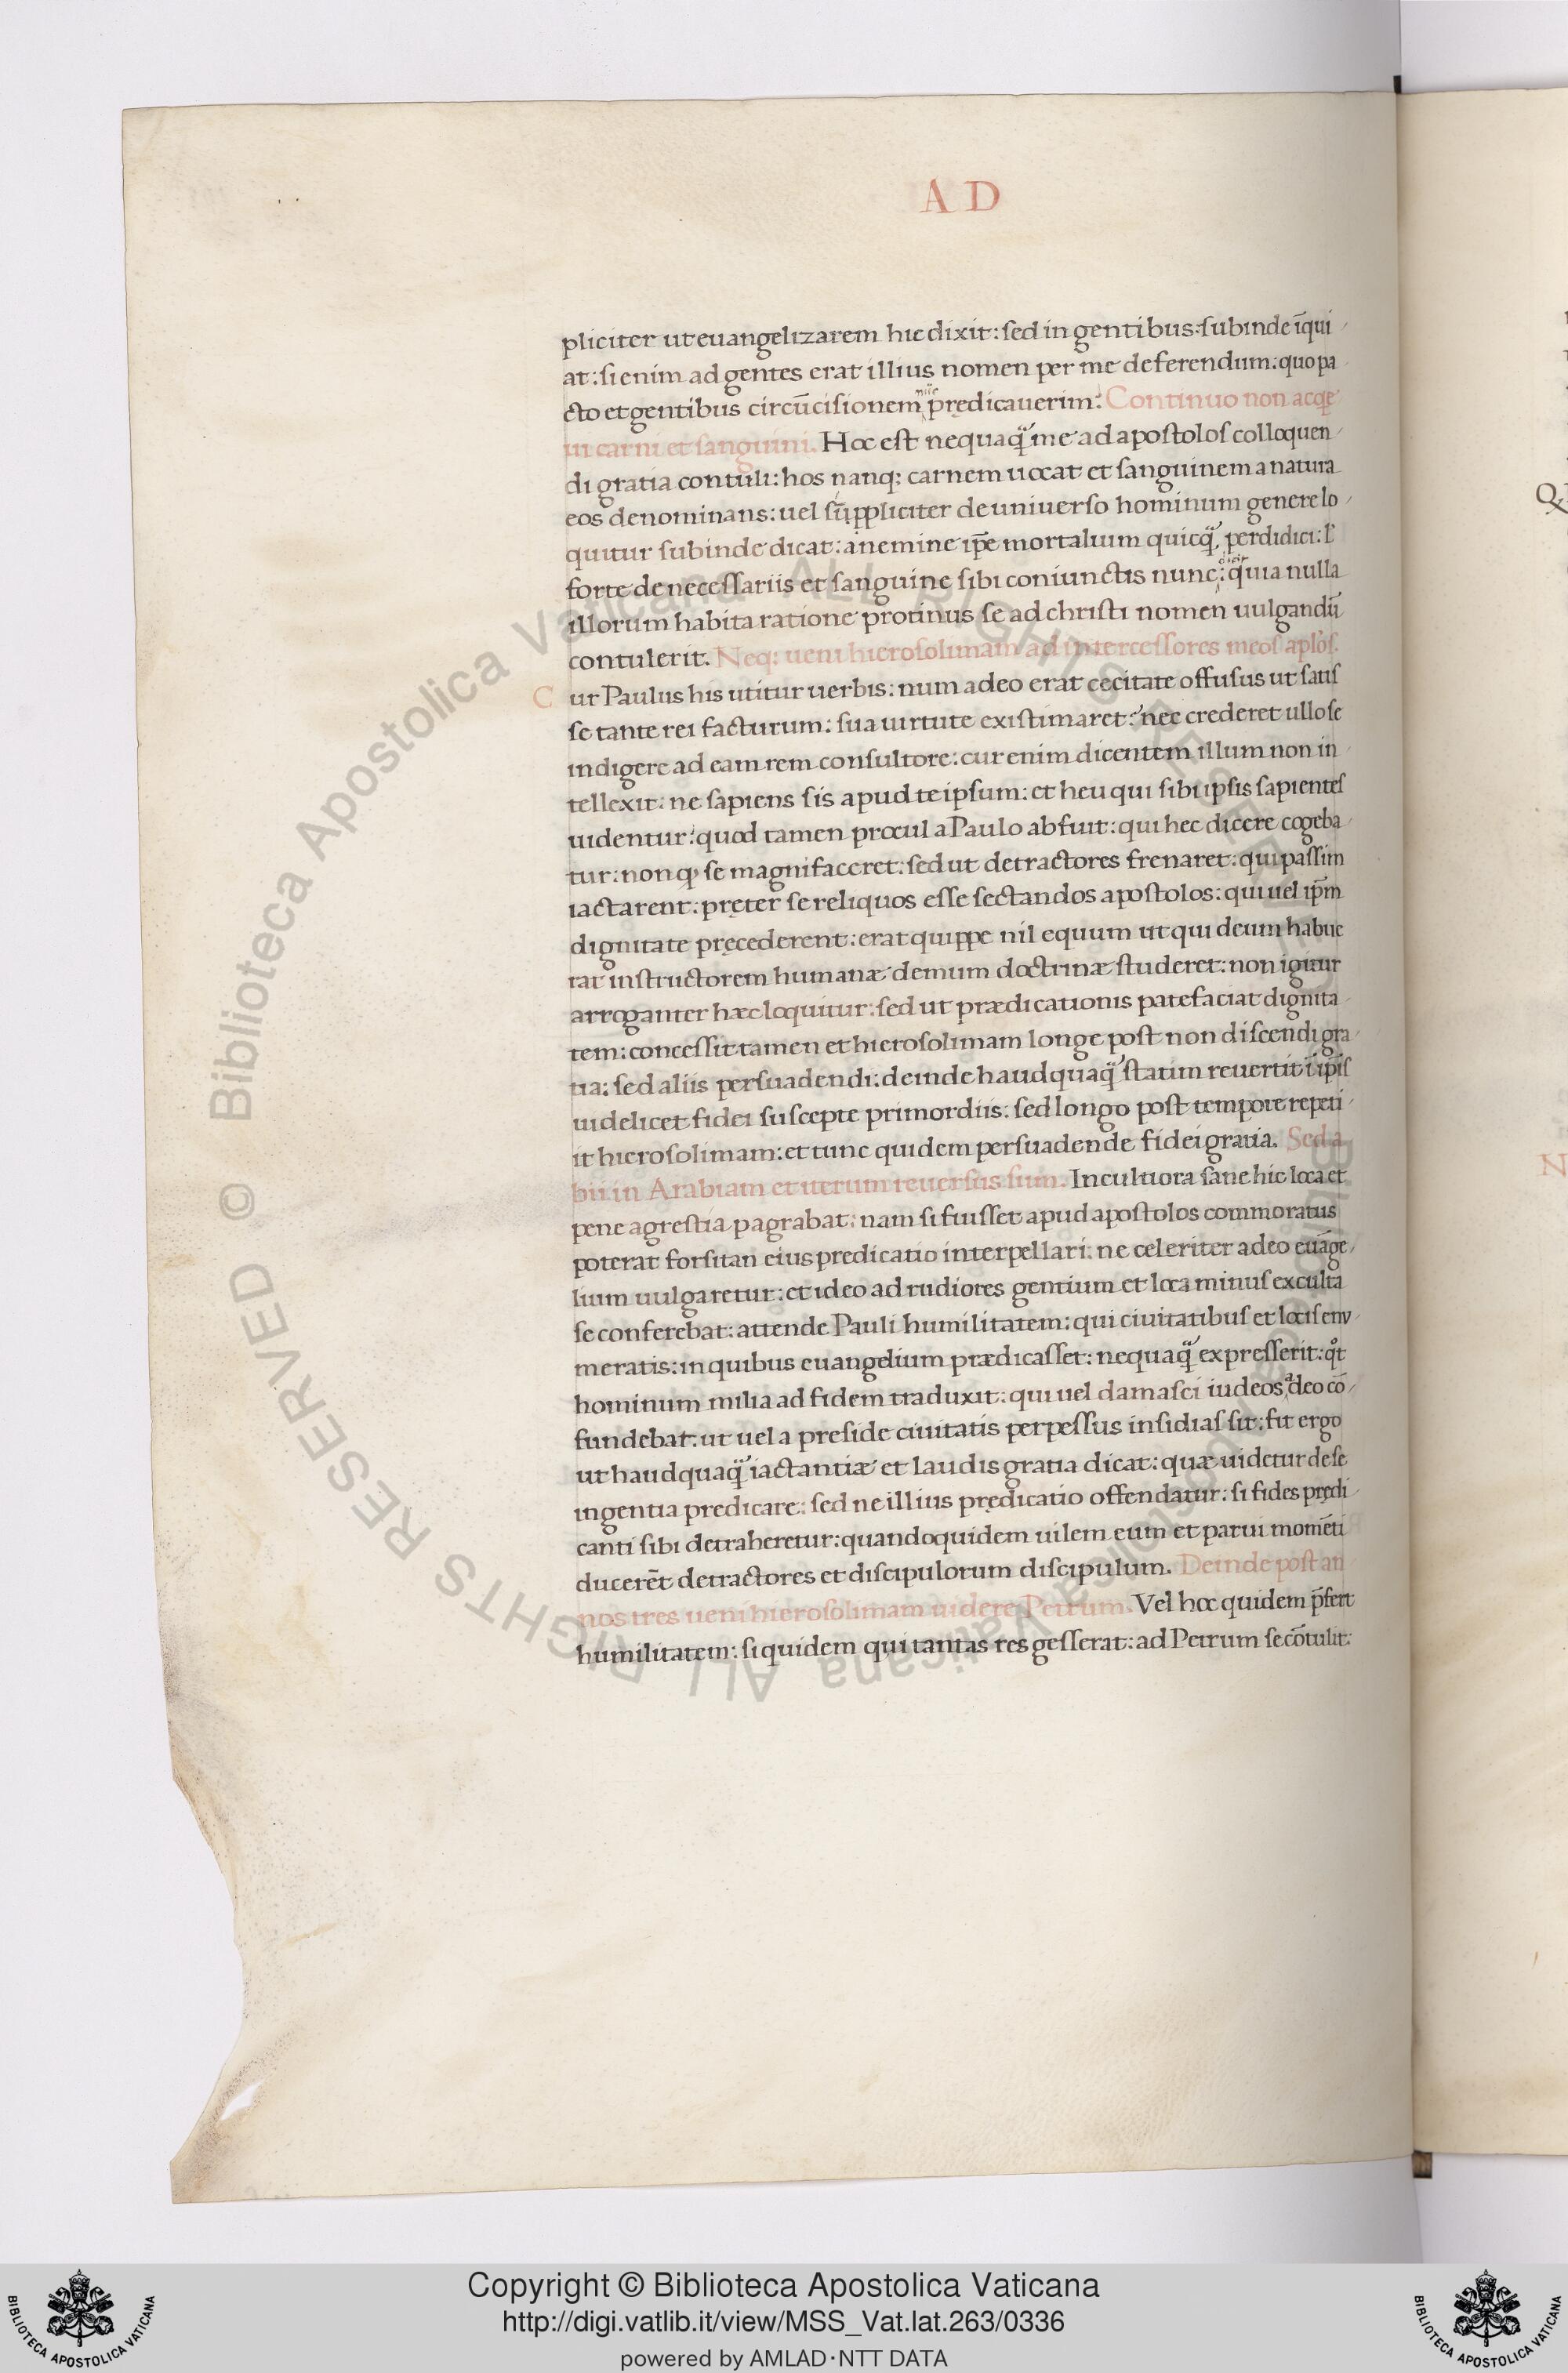 A D
pliciter ut euangelizarem hic dixit: sed in gentibus: subinde īqui
at: si enim ad gentes erat illius nomen per me deferendum: quo pa
cto et gentibus circūcisionem prędicauerim: Continuo non acq̄e
ui carni et sanguini. Hoc est nequaq̃ me ad apostolos colloquen
di gratia contuli: hos nanq; carnem uocat et sanguinem a natura
eos denominans: uel sūppliciter de uniuerso hominum genere lo
quitur subinde dicat: a nemine ip̄e mortalium quicq̃ perdidici: l'
forte de necessariis et sanguine sibi coniunctis nunc: quia nulla
illorum habita ratione protinus se ad christi nomen uulgandū
contulerit. Neq; ueni hierosolimam ad intercessores meos apl'os.
C ur Paulus his utitur uerbis: num adeo erat cecitate offusus ut satis
se tante rei facturum: sua uirtute existimaret: nec crederet ullo se
indigere ad eam rem consultore: cur enim dicentem illum non in
tellexit: ne sapiens sis apud te ipsum: et heu qui sibi ipsis sapientes
uidentur: quod tamen procul a Paulo abfuit: qui hec dicere cogeba
tur: non q, se magnifaceret: sed ut detractores frenaret: qui passim
iactarent: pręter se reliquos esse sectandos apostolos: qui uel ip̄m
dignitate pręcederent: erat quippe nil equum ut qui deum habue
rat instructorem humanæ demum doctrinæ studeret: non igitur
arroganter hæc loquitur: sed ut prædicationis patefaciat dignita
tem: concessit tamen et hierosolimam longe post non discendi gra
tia: sed aliis persuadendi: deinde haudquaq̃ statim reuertit ī ip̄is
uidelicet fidei suscepte primordiis: sed longo post tempore repeti
it hierosolimam: et tunc quidem persuadende fidei gratia. Sed a
bii in Arabiam et uterum reuersus sum. Incultiora sane hic loca et
pene agrestia pagrabat: nam si fuisset apud apostolos commoratus
poterat forsitan eius predicatio interpellari: ne celeriter adeo euāge
lium uulgaretur: et ideo ad rudiores gentium et loca minus exculta
se conferebat: attende Pauli humilitatem: qui ciuitatibus et locis enu
meratis: in quibus euangelium prædicasset: nequaq̃ expresserit: q̊t
hominum milia ad fidem traduxit: qui uel damasci iudeos adeo cō
fundebat: ut uel a preside ciuitatis perpessus insidias sit: fit ergo
ut haudquaq̃ iactantiæ et laudis gratia dicat: quæ uidetur de se
ingentia predicare: sed ne illius prędicatio offendatur: si fides prędi
canti sibi detraheretur: quandoquidem uilem eum et parui momēti
ducerēt detractores et discipulorum discipulum. Deinde post an
nos tres ueni hierosolimam uidere Petrum. Vel hoc quidem p̄fert
humilitatem: siquidem qui tantas res gesserat: ad Petrum se cōtulit:
Q
N
© Biblioteca Apostolica Vaticana ALL RIGHTS RESERVED
© Biblioteca Apostolica Vaticana ALL RIGHTS RESERVED
BIBLIOTECA APOSTOLICA VATICANA
Copyright © Biblioteca Apostolica Vaticana
http://digi.vatlib.it/view/MSS_Vat.lat.263/0336
powered by AMLAD·NTT DATA
BIBLIOTECA APOSTOLICA VATICANA